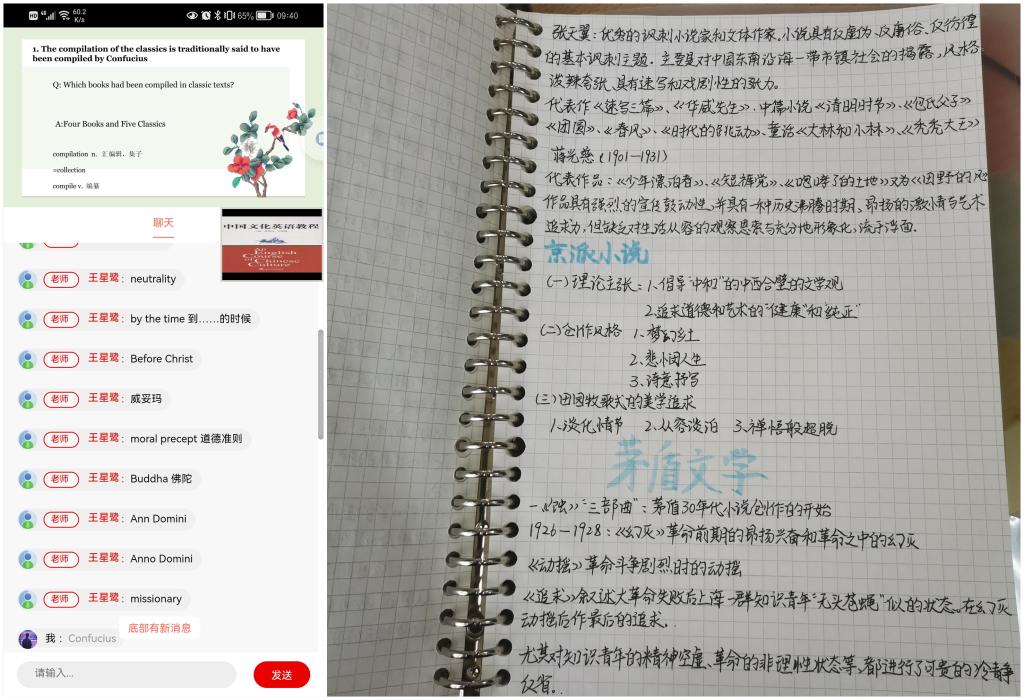 HD 4G 60.2 K/s 65% 09:40
1. The compilation of the classics is traditionally said to have
been compiled by Confucius
Q: Which books had been compiled in classic texts?
A:Four Books and Five Classics
compilation n. 汇编辑、集子
=collection
compile v. 编纂
聊天
中国文化英语教程
An
English
Course
of
Chinese
Culture
老师 王星鹭： neutrality
老师 王星鹭： by the time 到……的时候
老师 王星鹭： Before Christ
老师 王星鹭： 威妥玛
老师 王星鹭： moral precept 道德准则
老师 王星鹭： Buddha 佛陀
老师 王星鹭： Ann Domini
老师 王星鹭： Anno Domini
老师 王星鹭： missionary
我： Confucius
底部有新消息
请输入...
发送
张天翼：优秀的讽刺小说家和文体作家。小说具有反虚伪、反庸俗、反彷徨
的基本讽刺主题。主要是对中国东南沿海一带市镇社会的揭露，风格
泼辣夸张、具有速写和戏剧性的张力。
代表作《速写三篇》、《华威先生》、中篇小说《清明时节》、《包氏父子》
《团圆》、《春风》、《时代的跳动》、童话《大林和小林》、《秃秃大王》
蒋光慈（1901-1931）
代表作品：《少年漂泊者》、《短裤党》、《咆哮了的土地》又为《田野的风
作品具有强烈的宣传鼓动性，并具有一种历史沸腾时期、昂扬的激情与艺术
追求力，但缺乏对生活从容的观察思索与充分地形象化，流于浮面。
京派小说
（一）理论主张：1、倡导“中和”的中西合璧的文学观
2.追求道德和艺术的“健康”和“纯正”
（二）创作风格 1、梦幻乡土
2、悲悯人生
3、诗意抒写
（三）田园牧歌式的美学追求
1、淡化情节 2、从容淡泊 3、禅悟般超脱
茅盾文学
一、《蚀》“三部曲”：茅盾30年代小说创作的开始
1926—1928：《幻灭》革命前期的昂扬兴奋和革命之中的幻灭
《动摇》革命斗争剧烈时的动摇
《追求》叙述大革命失败后上海一群知识青年“无头苍蝇”似的状态。在幻灭
动摇后作最后的追求。
尤其对知识青年的精神空虚、革命的非理性状态等，都进行了可贵的冷静
反省。